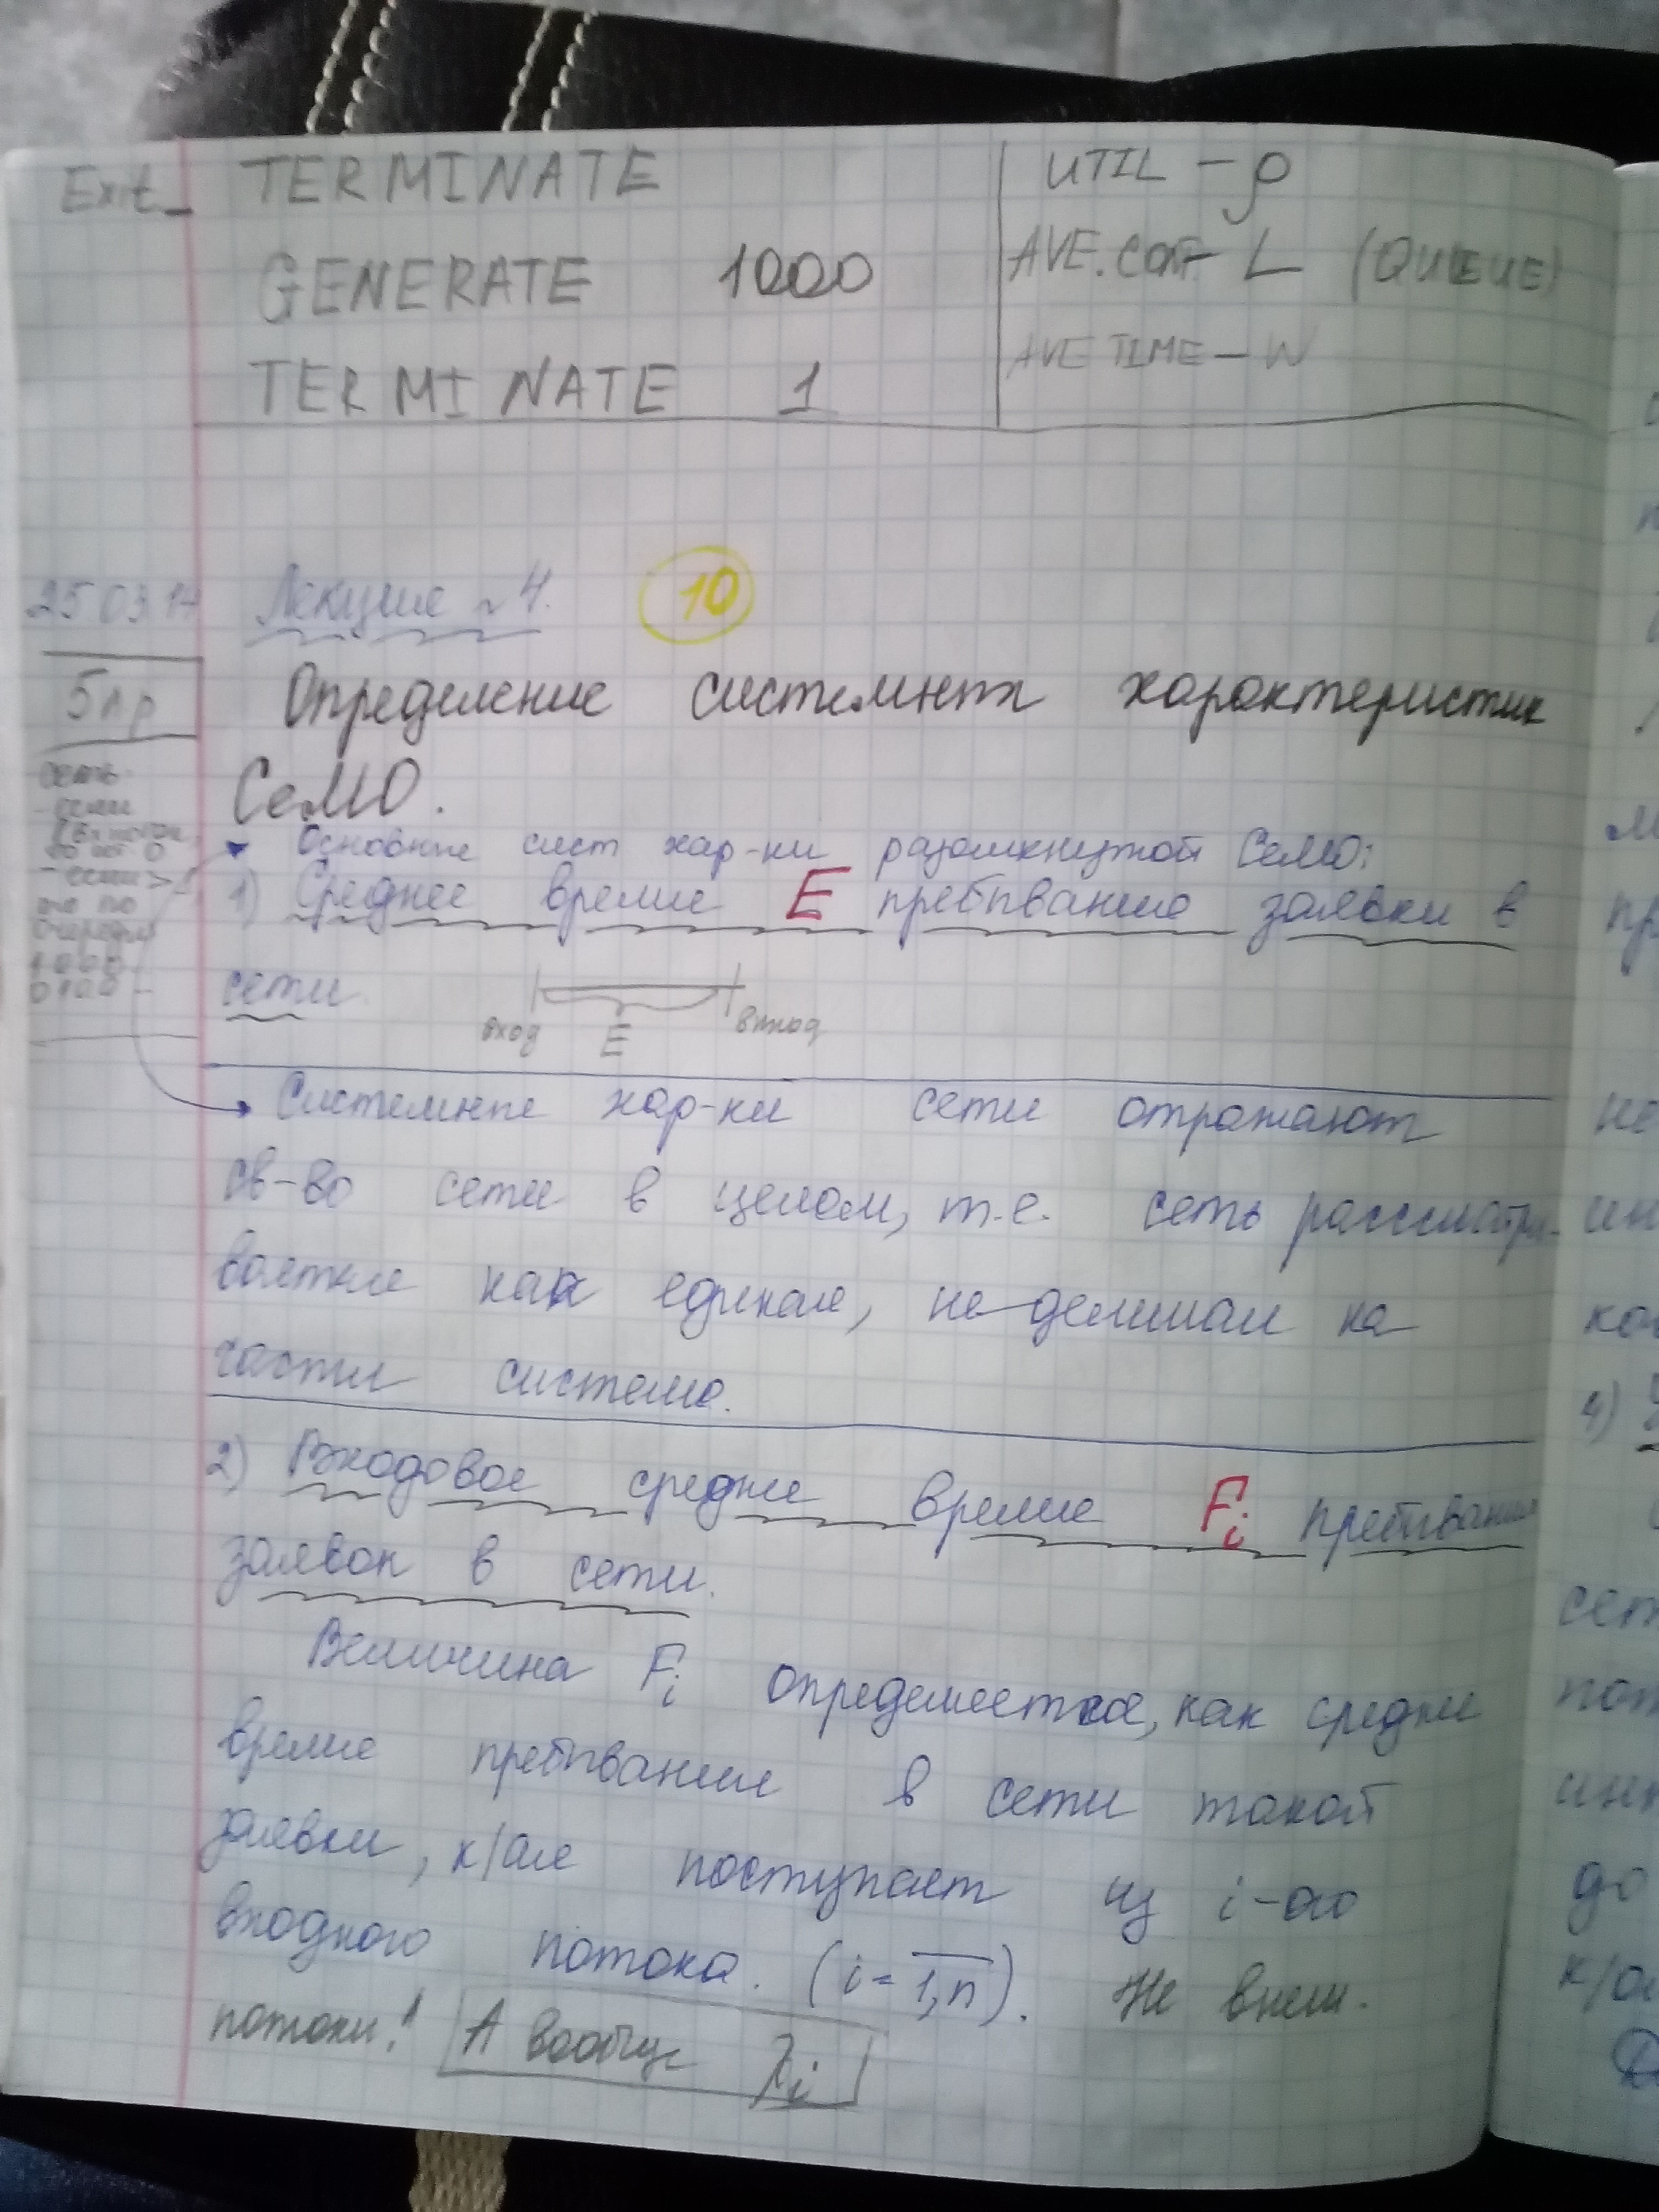 Exit_ TERMINATE
GENERATE 1000
TERMINATE 1
UTIL – ρ
AVE.CONT. – L (QUEUE)
AVE TIME – W
25 03 14 Лекция №4. 10
5 пр
Определение системных характеристик
СеМО.
сеть
- если
- если >
по
очереди
1000
0100
Основные сист хар-ки разомкнутой СеМО:
1) Среднее время E пребывание заявки в
сети
вход E выход
Системные хар-ки сети отражают
св-во сети в целом, т.е. сеть рассматри-
вается как единая, не делимая на
части система.
2) Входовое среднее время Fi пребывания
заявок в сети.
Величина Fi определяется, как среднее
время пребывания в сети такой
заявки, к/ая поступает из i-ого
входного потока. (i = 1,n). Не внеш.
потоки! А вообще λi